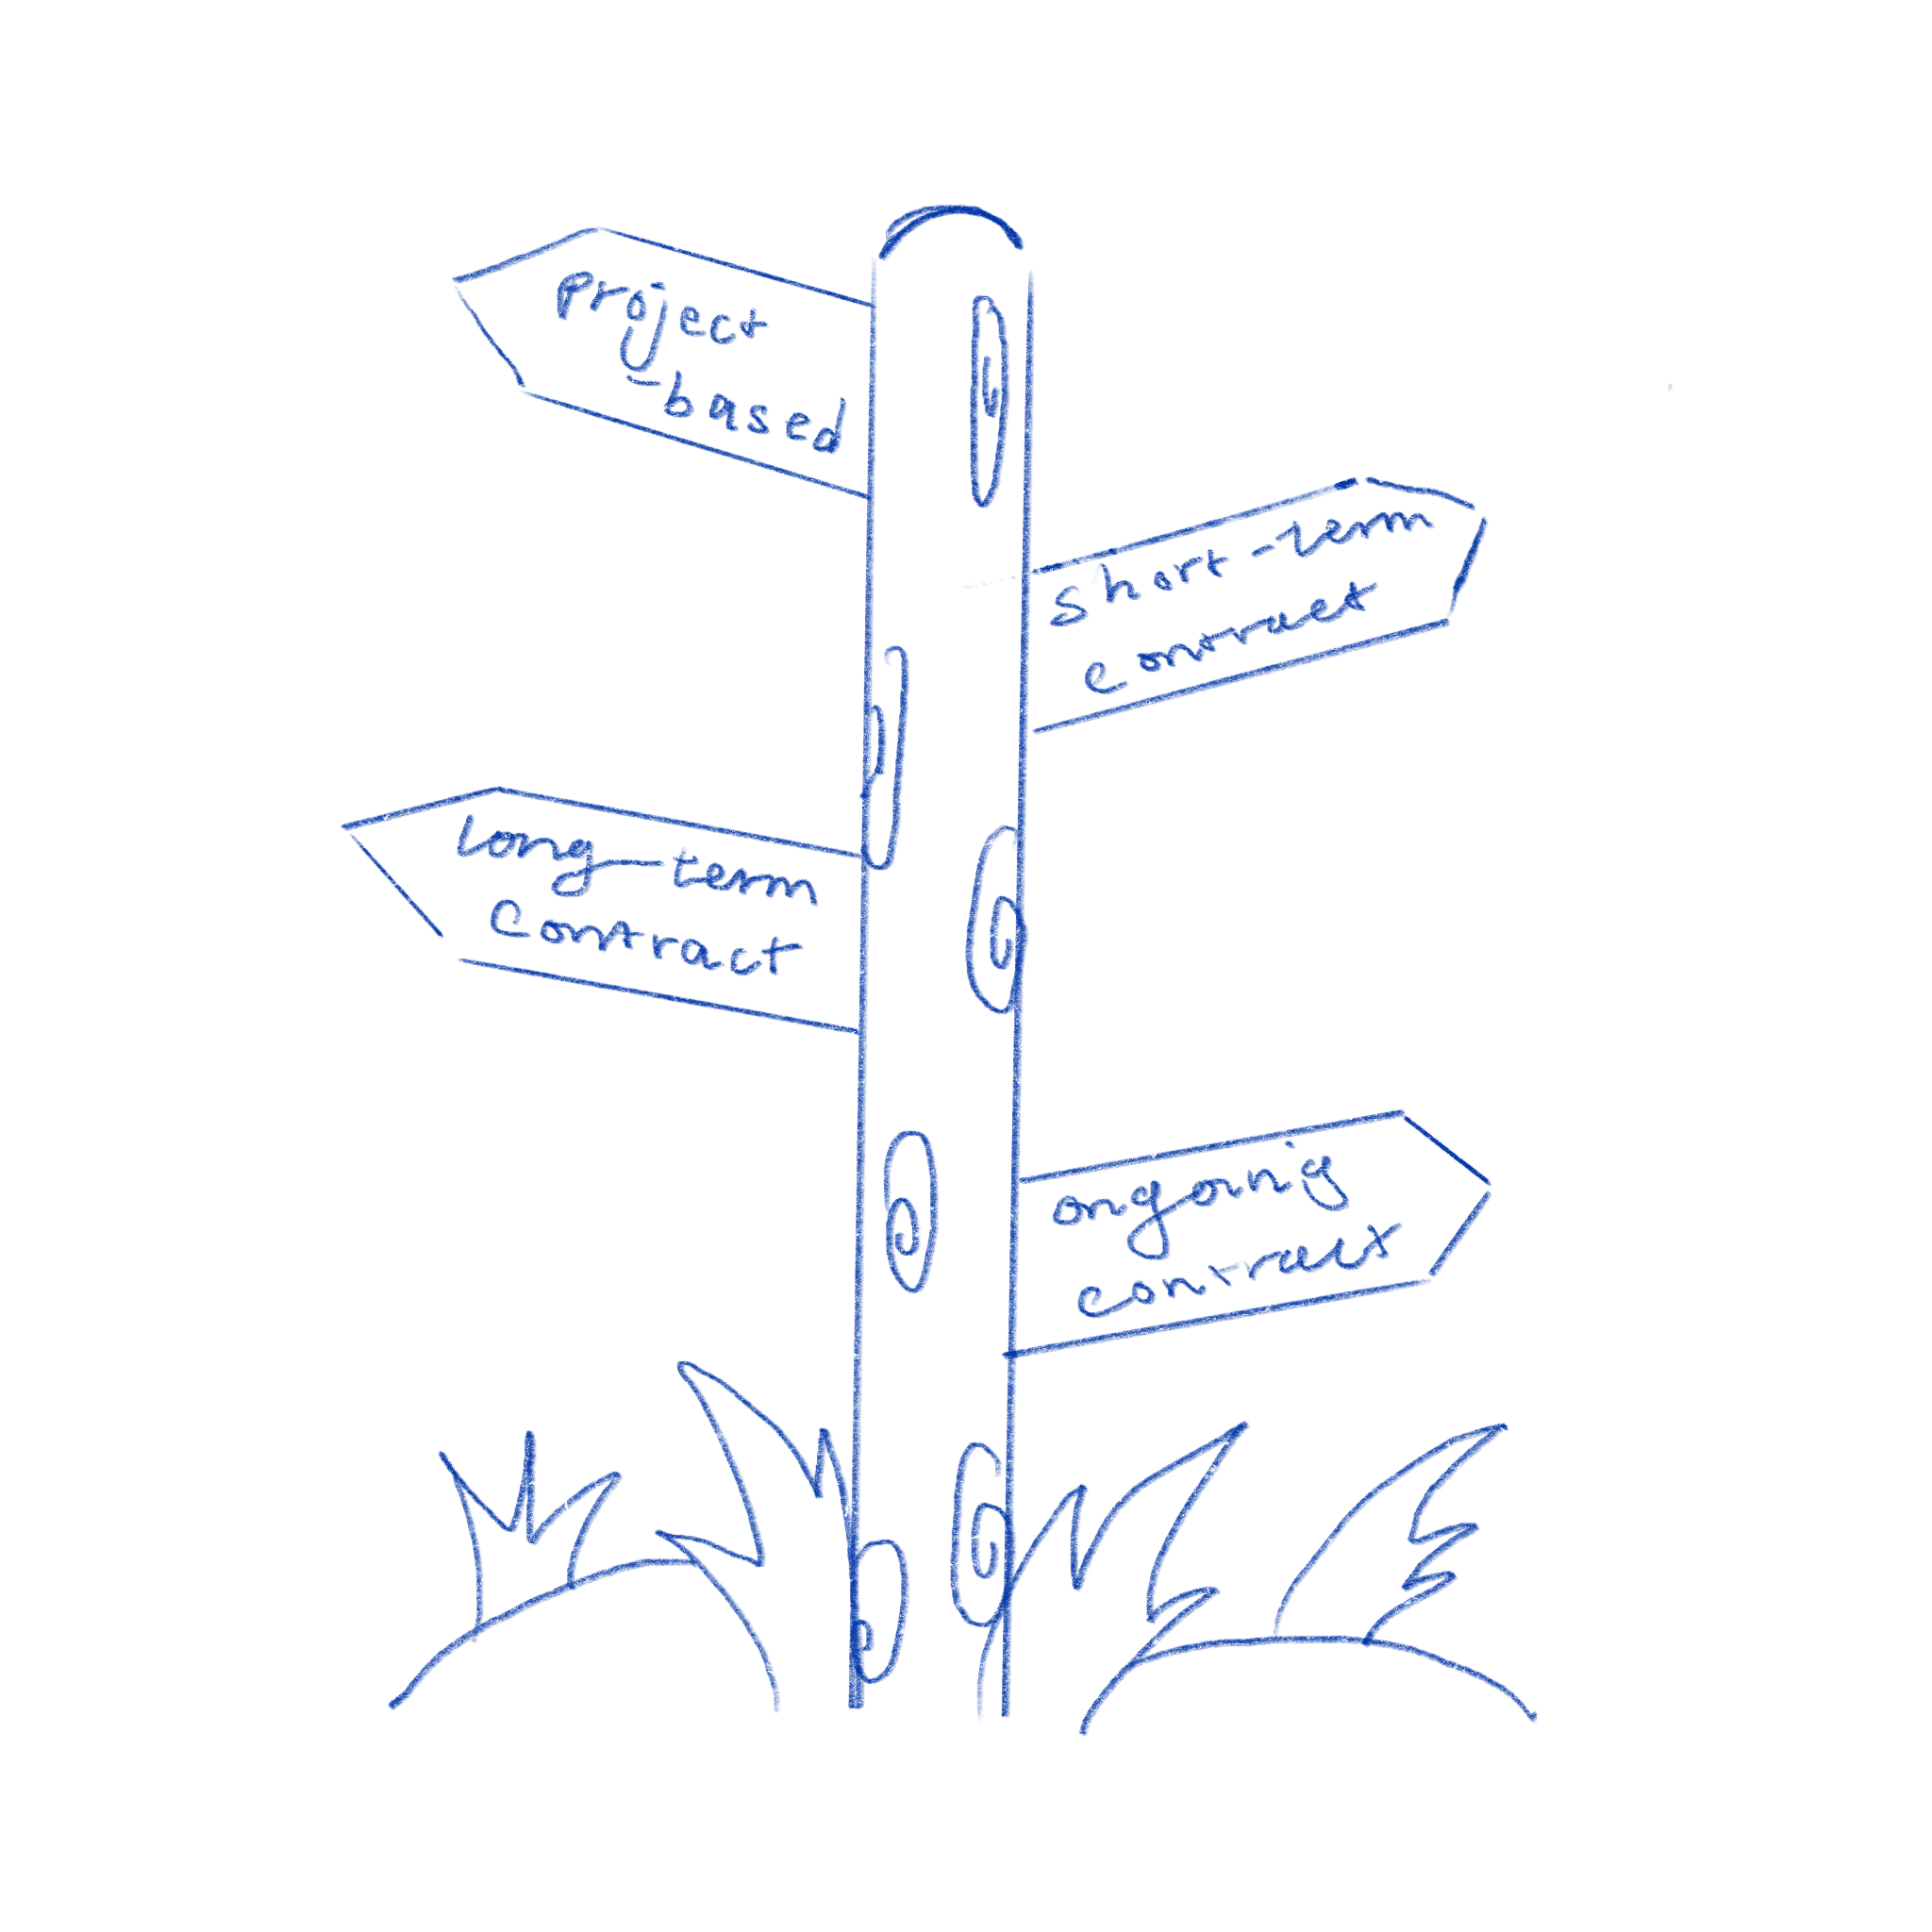 project
-based
short-term
contract
long-term
contract
ongoing
contract